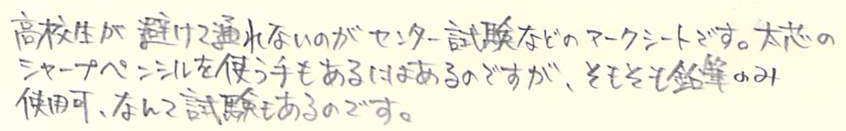 高校生が避けて通れないのがセンター試験などのマークシートです。太芯の
シャープペンシルを使う手もあるにはあるのですが、そもそも鉛筆のみ
使用可、なんて試験もあるのです。